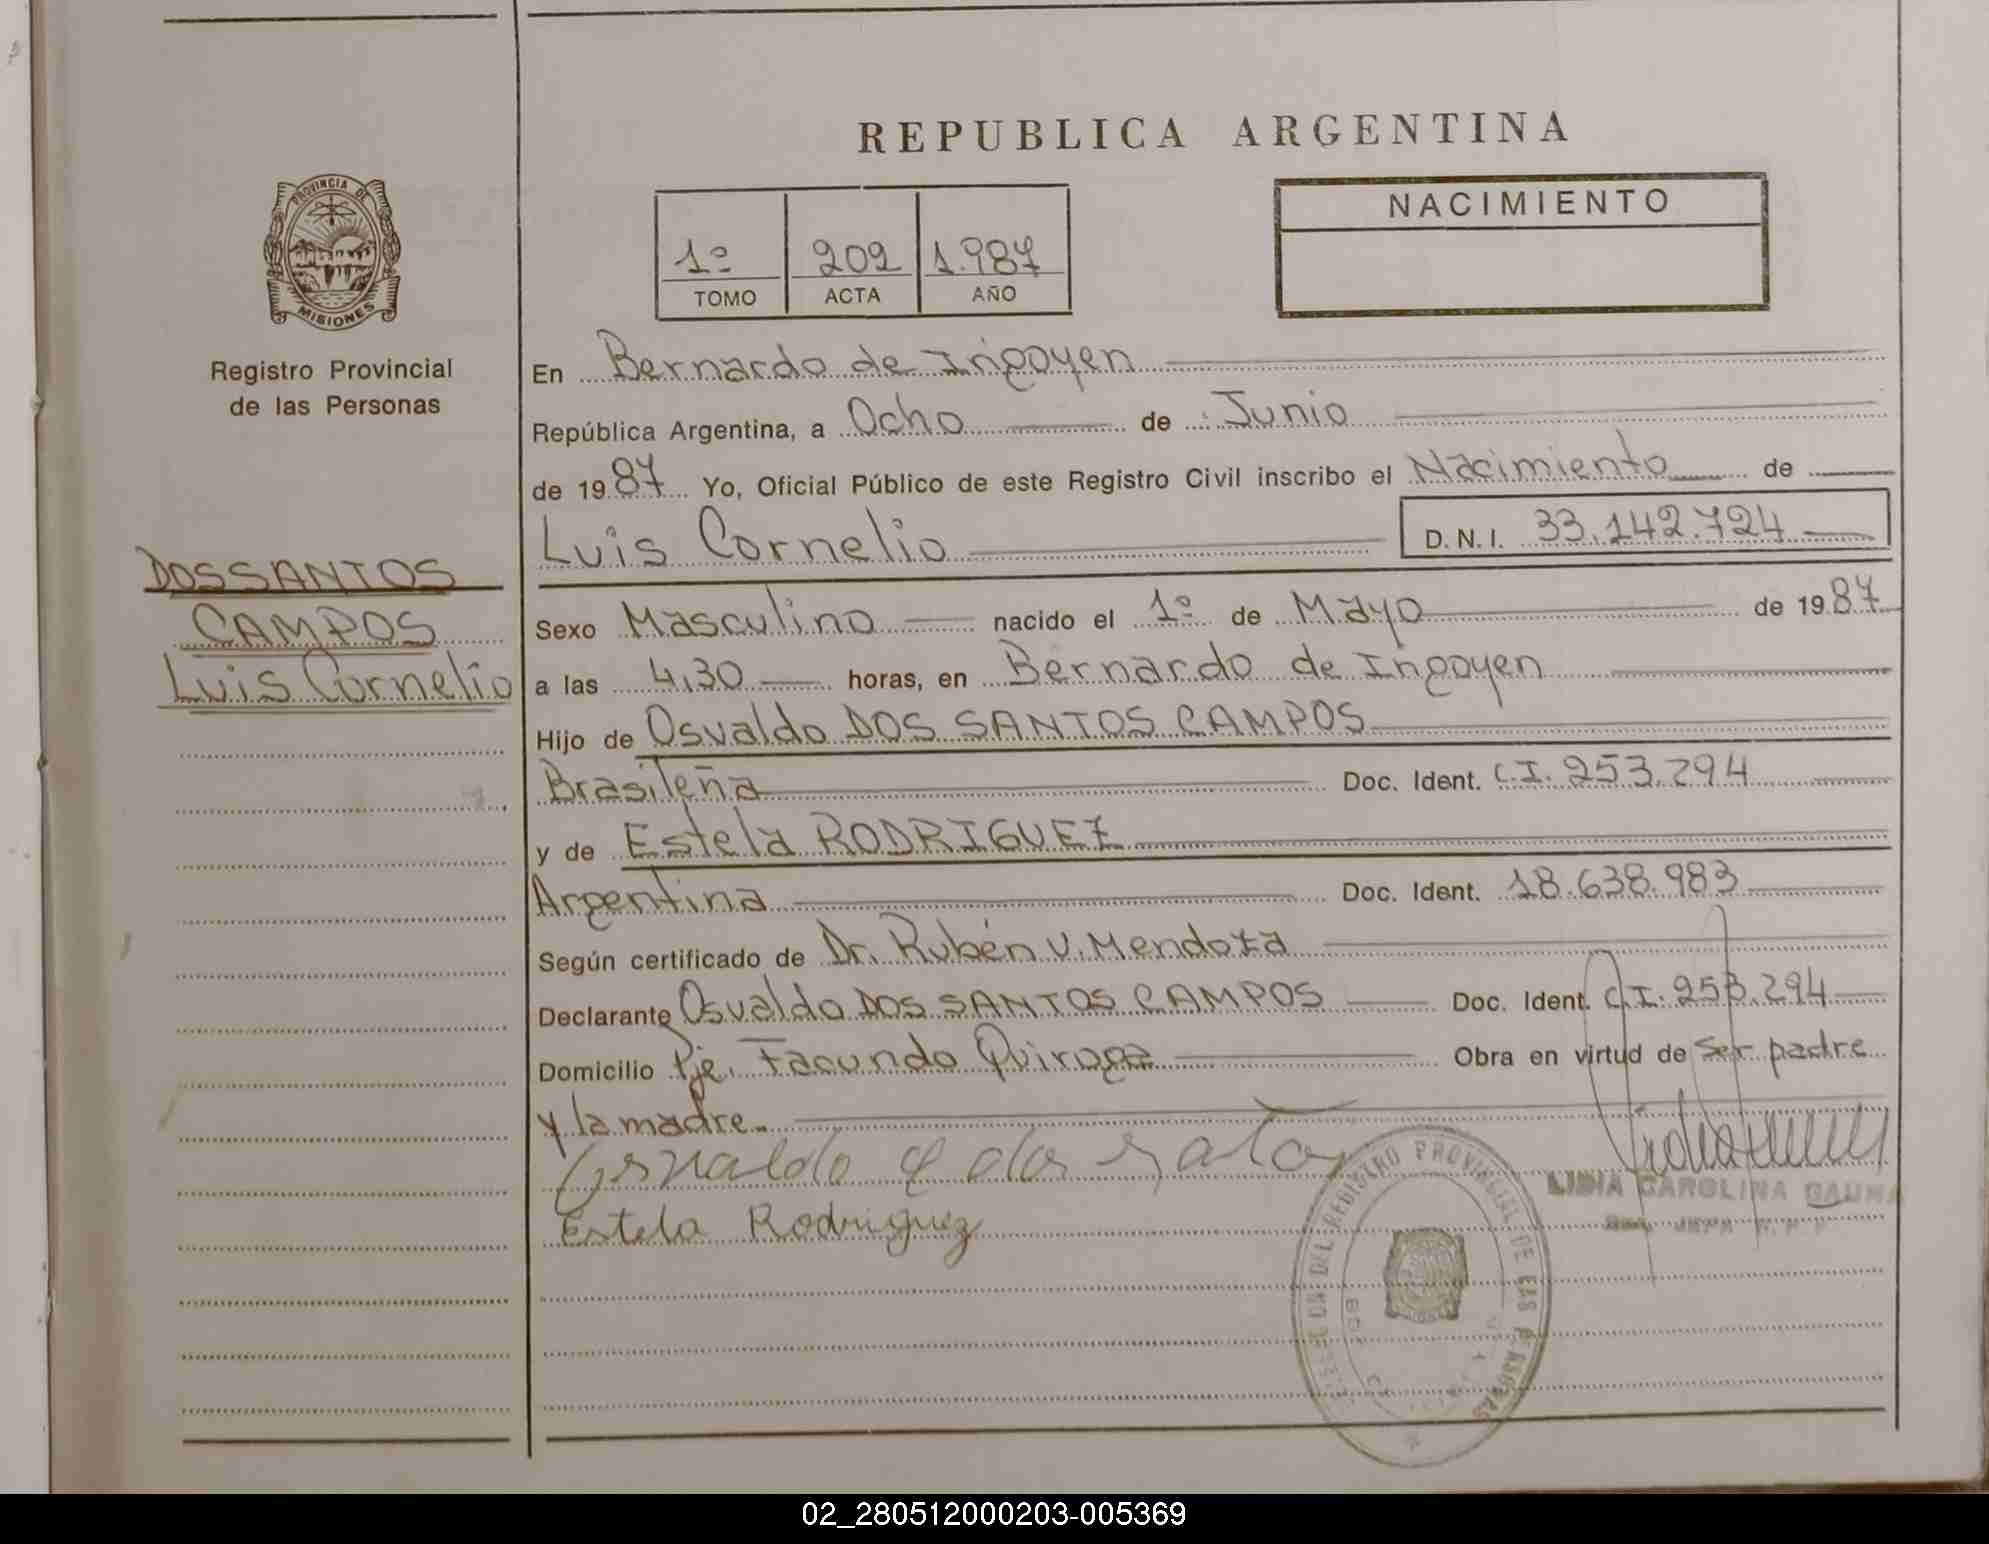 REPUBLICA ARGENTINA
PROVINCIA DE
MISIONES
Registro Provincial
de las Personas
NACIMIENTO
1º 202 1.987
TOMO ACTA AÑO
En Bernardo de Irigoyen
República Argentina, a Ocho de Junio
de 1987 Yo, Oficial Público de este Registro Civil inscribo el Nacimiento de
Luis Cornelio D.N.I. 33.142.724
DOS SANTOS
CAMPOS
Luis Cornelio
Sexo Masculino nacido el 1º de Mayo de 1987
a las 4,30 horas, en Bernardo de Irigoyen
Hijo de Osvaldo DOS SANTOS CAMPOS
Brasileña Doc. Ident. C.I. 253.294
y de Estela RODRIGUEZ
Argentina Doc. Ident. 18.638.983
Según certificado de Dr. Rubén V. Mendoza
Declarante Osvaldo DOS SANTOS CAMPOS Doc. Ident. C.I. 253.294
Domicilio Pje. Facundo Quiroga Obra en virtud de Ser padre
y la madre.
Osvaldo
Estela Rodriguez
LIDIA CAROLINA GAUNA
DEL REGISTRO PROVINCIAL DE LAS PERSONAS
02_280512000203-005369